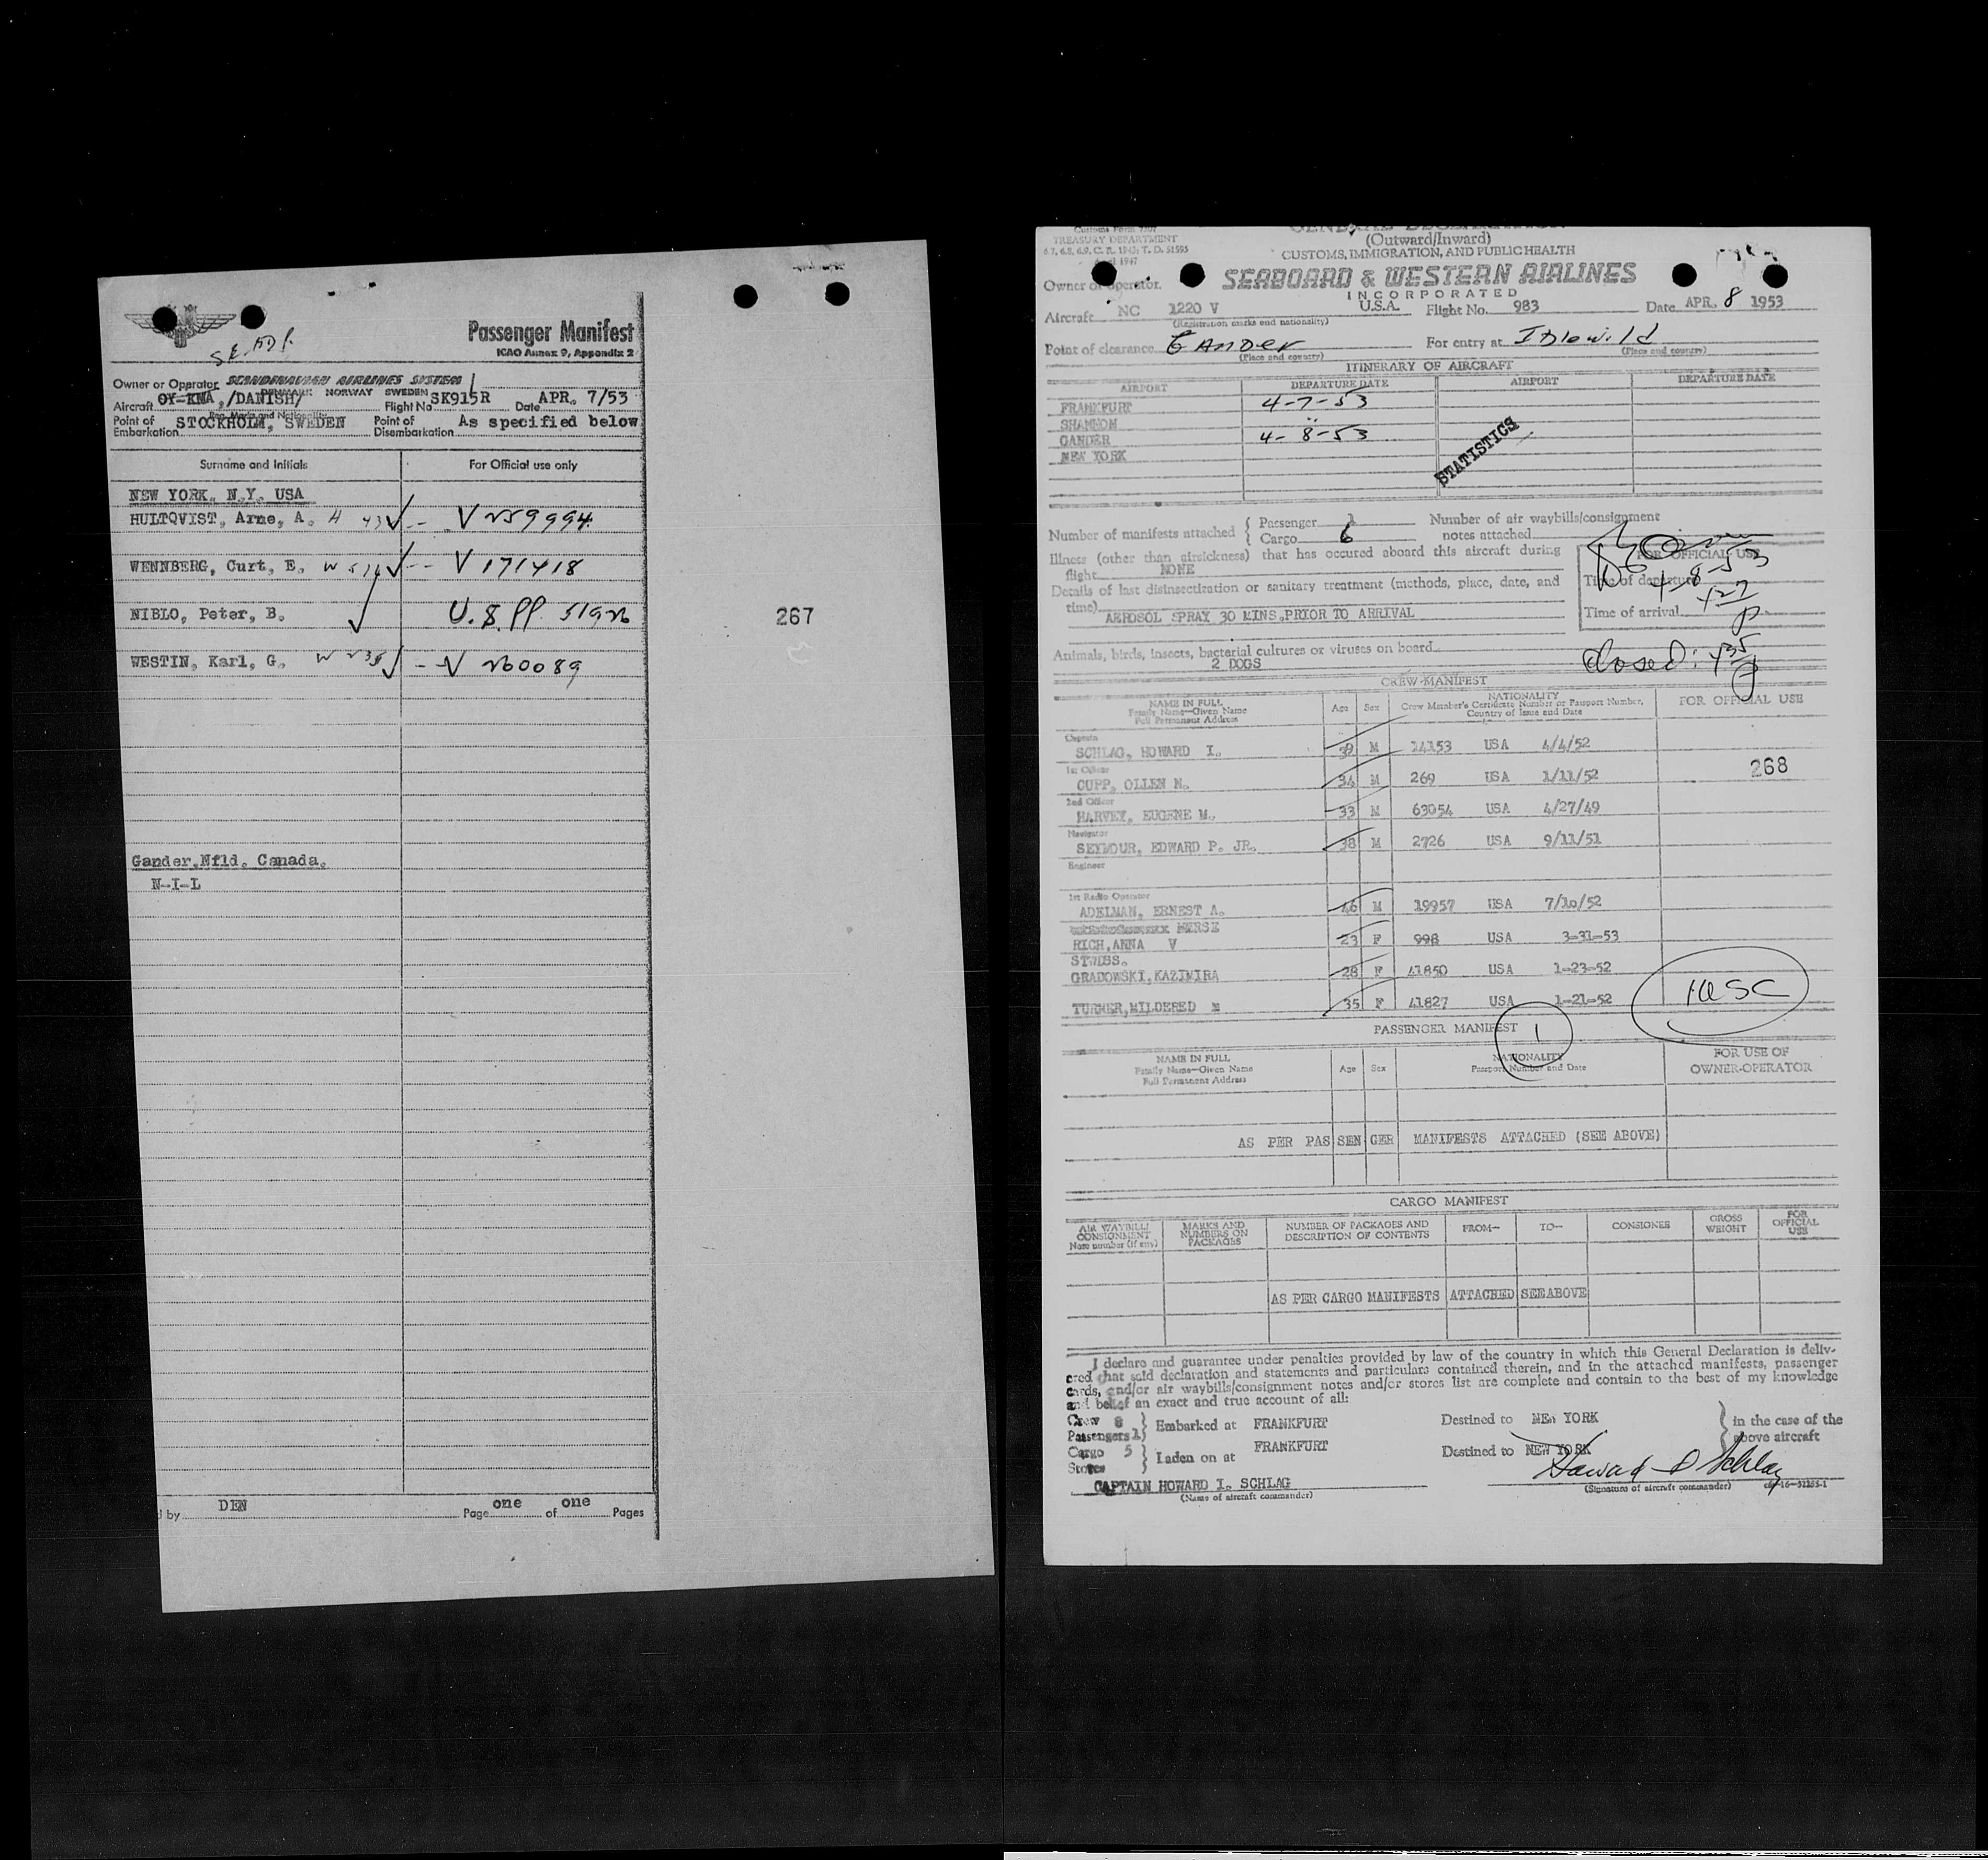 Passenger Manifest
ICAO Annex 9, Appendix 2
Owner or Operator SCANDINAVIAN AIRLINES SYSTEM
DENMARK NORWAY SWEDEN
Aircraft OY-KMA, /DANISH/ Flight No SK915R Date APR. 7/53
Reg. Marks and Nationality
Point of Embarkation STOCKHOLM, SWEDEN Point of Disembarkation As specified below
Surname and Initials For Official use only
NEW YORK. N.Y. USA
HULTQVIST, Arne, A. H 43 V 259994
WENNBERG, Curt, E. V 171418
NIBLO, Peter, B. U.S. PP.
WESTIN, Karl, G. V 260089
267
Gander, Nfld. Canada.
N-I-L
d by DEN Page one of one Pages
Customs Form 7507
TREASURY DEPARTMENT
6.7, 6.8, 6.9, C. R. 1943; T. D. 51593
April 1947
GENERAL DECLARATION
(Outward/Inward)
CUSTOMS, IMMIGRATION, AND PUBLIC HEALTH
Owner or operator. SEABOARD & WESTERN AIRLINES
INCORPORATED
Aircraft NC 1220 V U.S.A. Flight No. 983 Date APR. 8 1953
(Registration marks and nationality)
Point of clearance Gander For entry at Idlewild
(Place and country) (Place and country)
ITINERARY OF AIRCRAFT
AIRPORT DEPARTURE DATE AIRPORT DEPARTURE DATE
FRANKFURT 4-7-53
SHANNON "
GANDER 4-8-53
NEW YORK
STATISTICS
Number of manifests attached { Passenger 1 Number of air waybills/consignment
Cargo 6 notes attached
Illness (other than airsickness) that has occured aboard this aircraft during
flight NONE
FOR OFFICIAL USE
Details of last disinsectization or sanitary treatment (methods, place, date, and
time) AEROSOL SPRAY 30 MINS. PRIOR TO ARRIVAL
Time of departure 4-8-53
Time of arrival
Animals, birds, insects, bacterial cultures or viruses on board
2 DOGS
Closed: 435 P
CREW MANIFEST
NAME IN FULL
Family Name—Given Name
Full Permanent Address
Age Sex
NATIONALITY
Crew Member's Certificate Number or Passport Number,
Country of Issue and Date
FOR OFFICIAL USE
Captain
SCHLAG, HOWARD I. 39 M 14153 USA 4/4/52
1st Officer
CUPP, OLLEN M. 34 M 269 USA 1/11/52
268
2nd Officer
HARVEY, EUGENE M. 33 M 63054 USA 4/27/49
Navigator
SEYMOUR, EDWARD P. JR. 38 M 2726 USA 9/11/51
Engineer
1st Radio Operator
ADELMAN, ERNEST A. 46 M 19957 USA 7/10/52
NURSE
RICH,ANNA V 23 F 998 USA 3-31-53
STWDSS.
GRADOWSKI,KAZIMIRA 28 F 41850 USA 1-23-52
TURNER,MILDERED M 35 F 41827 USA 1-21-52
PASSENGER MANIFEST 1
NAME IN FULL
Family Name—Given Name
Full Permanent Address
Age Sex
NATIONALITY
Passport Number and Date
FOR USE OF
OWNER-OPERATOR
AS PER PASSENGER MANIFESTS ATTACHED (SEE ABOVE)
CARGO MANIFEST
AIR WAYBILL/
CONSIGNMENT
Note number (if any)
MARKS AND
NUMBERS ON
PACKAGES
NUMBER OF PACKAGES AND
DESCRIPTION OF CONTENTS
FROM— TO— CONSIGNEE
GROSS
WEIGHT
FOR
OFFICIAL
USE
AS PER CARGO MANIFESTS ATTACHED SEE ABOVE
I declare and guarantee under penalties provided by law of the country in which this General Declaration is deliv-
ered that said declaration and statements and particulars contained therein, and in the attached manifests, passenger
cards, and/or air waybills/consignment notes and/or stores list are complete and contain to the best of my knowledge
and belief an exact and true account of all:
Crew 8
Passengers 1 } Embarked at FRANKFURT Destined to NEW YORK } in the case of the
above aircraft
Cargo 5
Stores } Laden on at FRANKFURT Destined to NEW YORK
Howard I Schlag
CAPTAIN HOWARD I. SCHLAG
(Name of aircraft commander) (Signature of aircraft commander)